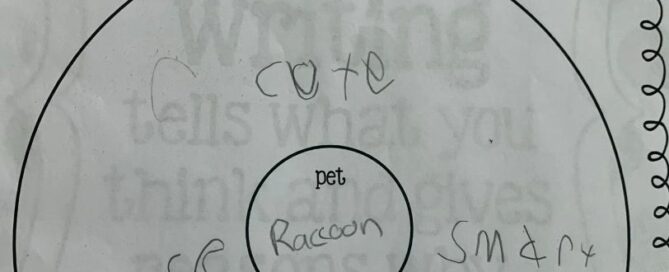 Writing
tells what you
cute
think and gives
pet
Raccoon
smart